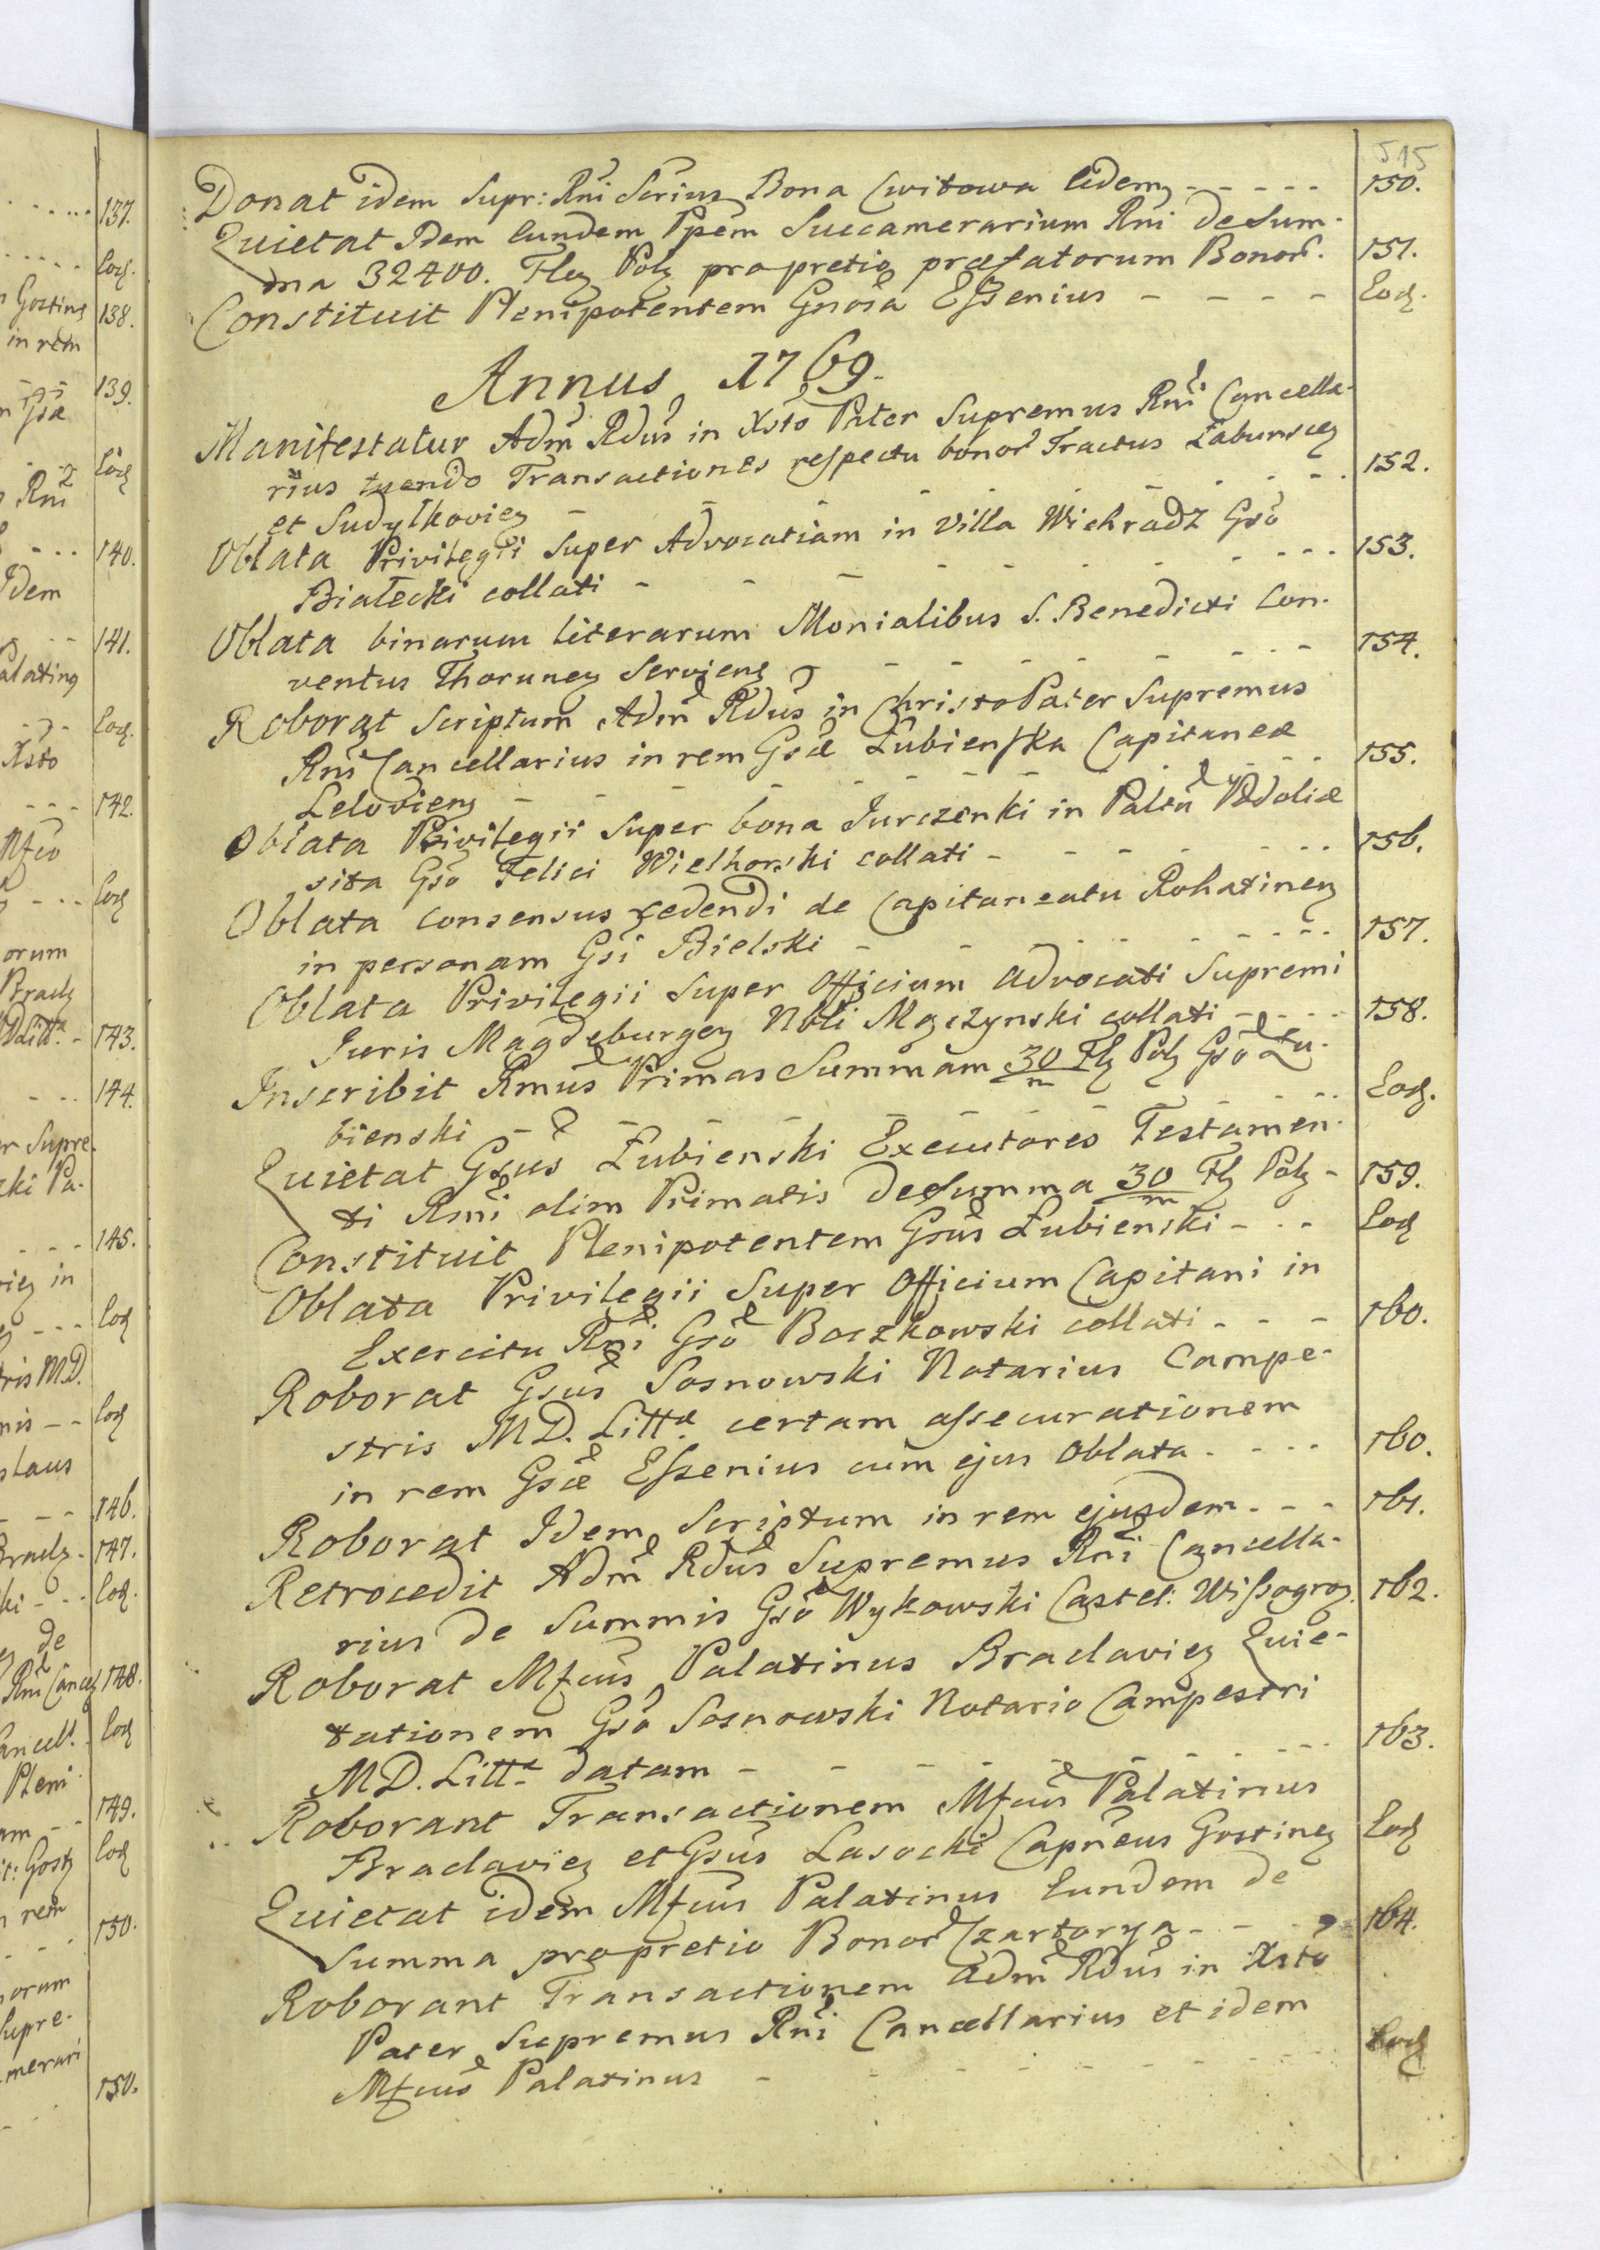 515
Donat idem Supr: Rni Scrius Bona Cwitowa eidem - - - - - 150.
Quietat Idem eundem Ppem Succamerarium Rni de Sum-
ma 32400. Fleg Polg pro pretio praefatorum Bonor. 151.
Constituit Plenipotentem Gnosa Essenius - - - - Eod.
Annus 1769.
Manifestatur Adm Rdus in Xsto Pater Supremus Rni Cancella-
rius tuendo Transactiones respectu bonor Tractus Łabunscieg
et Sudyłkovieg - - - - - 152.
Oblata Privilegii Super Advocatiam in Villa Wichradz Gso
Białecki collati - - - - - 153.
Oblata binarum literarum Monialibus S. Benedicti Con-
ventus Thoruneg Servieng - - - - - 154.
Roborat Scriptum Adm Rdus in Christo Pater Supremus
Rni Cancellarius in rem Gsae Łubienska Capitaneae
Leloviensg - - - - - 155.
Oblata Privilegii Super bona Jurczenki in Paltu Podoliae
sita Gso Felici Wielhorski collati - - - - - 156.
Oblata Consensus cedendi de Capitaneatu Rohatineg
in personam Gsi Bielski - - - - - 157.
Oblata Privilegii Super Officium Advocati Supremi
Juris Magdeburgeg Nbli Mączynski collati - - - - 158.
Inscribit Rmus Primas Summam 30/m Flg Polg Gso Łu-
bienski - - - - - Eod.
Quietat Gsus Łubienski Executores Testamen-
ti Rmi olim Primatis de Summa 30/m Flg Polg - 159.
Constituit Plenipotentem Gsus Łubienski - - - Eod
Oblata Privilegii Super Officium Capitani in
Exercitu Rni Gso Boczkowski collati - - - 160.
Roborat Gsus Sosnowski Notarius Campe-
stris M.D. Littae certam assecurationem
in rem Gsae Essenius cum ejus Oblata - - - - 160.
Roborat Idem Scriptum in rem ejusdem - - - 161.
Retrocedit Adm Rdus Supremus Rni Cancella-
rius de Summis Gso Wykowski Castel: Wissogrog. 162.
Roborat Mfcus Palatinus Braclavieg Quie-
tationem Gso Sosnowski Notario Campestri
M.D. Litt. datam - - - - - 163.
Roborant Transactionem Mfcus Palatinus
Braclavieg et Gsus Lasocki Capneus Gostineg Eod
Quietat idem Mfcus Palatinus Eundem de
Summa pro pretio Bonor Czartorya - - - 164.
Roborant Transactionem Adm Rdus in Xsto
Pater Supremus Rni Cancellarius et idem
Mfcus Palatinus - - - - - Eod